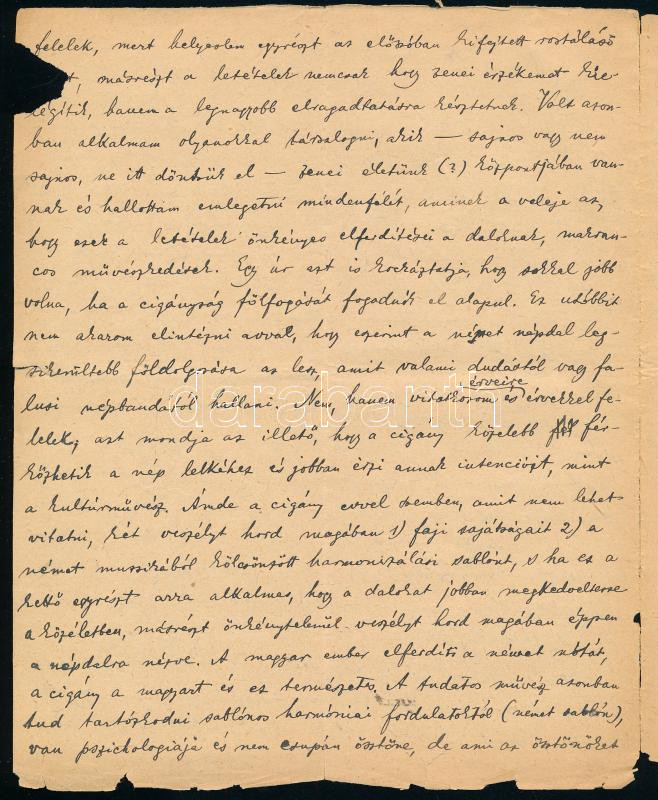 felelek, mert helyeslem egyrészt az előszóban kifejtett rostálási
t, másrészt a letételek nemcsak hogy zenei érzékemet kie-
légítik, hanem a legnagyobb elragadtatásra késztetnek. Volt azon-
ban alkalmam olyanokkal társalogni, akik — sajnos vagy nem
sajnos, ne itt döntsük el — zenei életünk (?) központjában van-
nak és hallottam emlegetni mindenfélét, aminek a veleje az,
hogy ezek a letételek önkényes elferdítései a daloknak, makran-
cos művészkedések. Egy úr azt is kockáztatja, hogy sokkal jobb
volna, ha a cigányság fölfogását fogadnók el alapul. Ez utóbbit
nem akarom elintézni avval, hogy eszerint a német népdal leg-
sikerültebb földolgozása az lesz, amit valami dudástól vagy fa-
lusi népbandától hallani. Nem, hanem vitatkozom és érveire érvekkel fe-
lelek; azt mondja az illető, hogy a cigány közelebb fér-
kőzhetik a nép lelkéhez és jobban érzi annak intencióját, mint
a kultúrművész. Ámde a cigány evvel szemben, amit nem lehet
vitatni, két veszélyt hord magában 1) faji sajátságait 2) a
német muzsikából kölcsönzött harmonizálási sablónt, s ha ez a
kettő egyrészt arra alkalmas, hogy a dalokat jobban megkedveltesse
a közéletben, másrészt önkénytelenül veszélyt hord magában éppen
a népdalra nézve. A magyar ember elferdíti a német nótát,
a cigány a magyart és ez természetes. A tudatos művész azonban
tud tartózkodni sablónos harmóniai fordulatoktól (német sablón),
van pszichologiája és nem csupán ösztöne, de ami az ösztönöket
darabanth